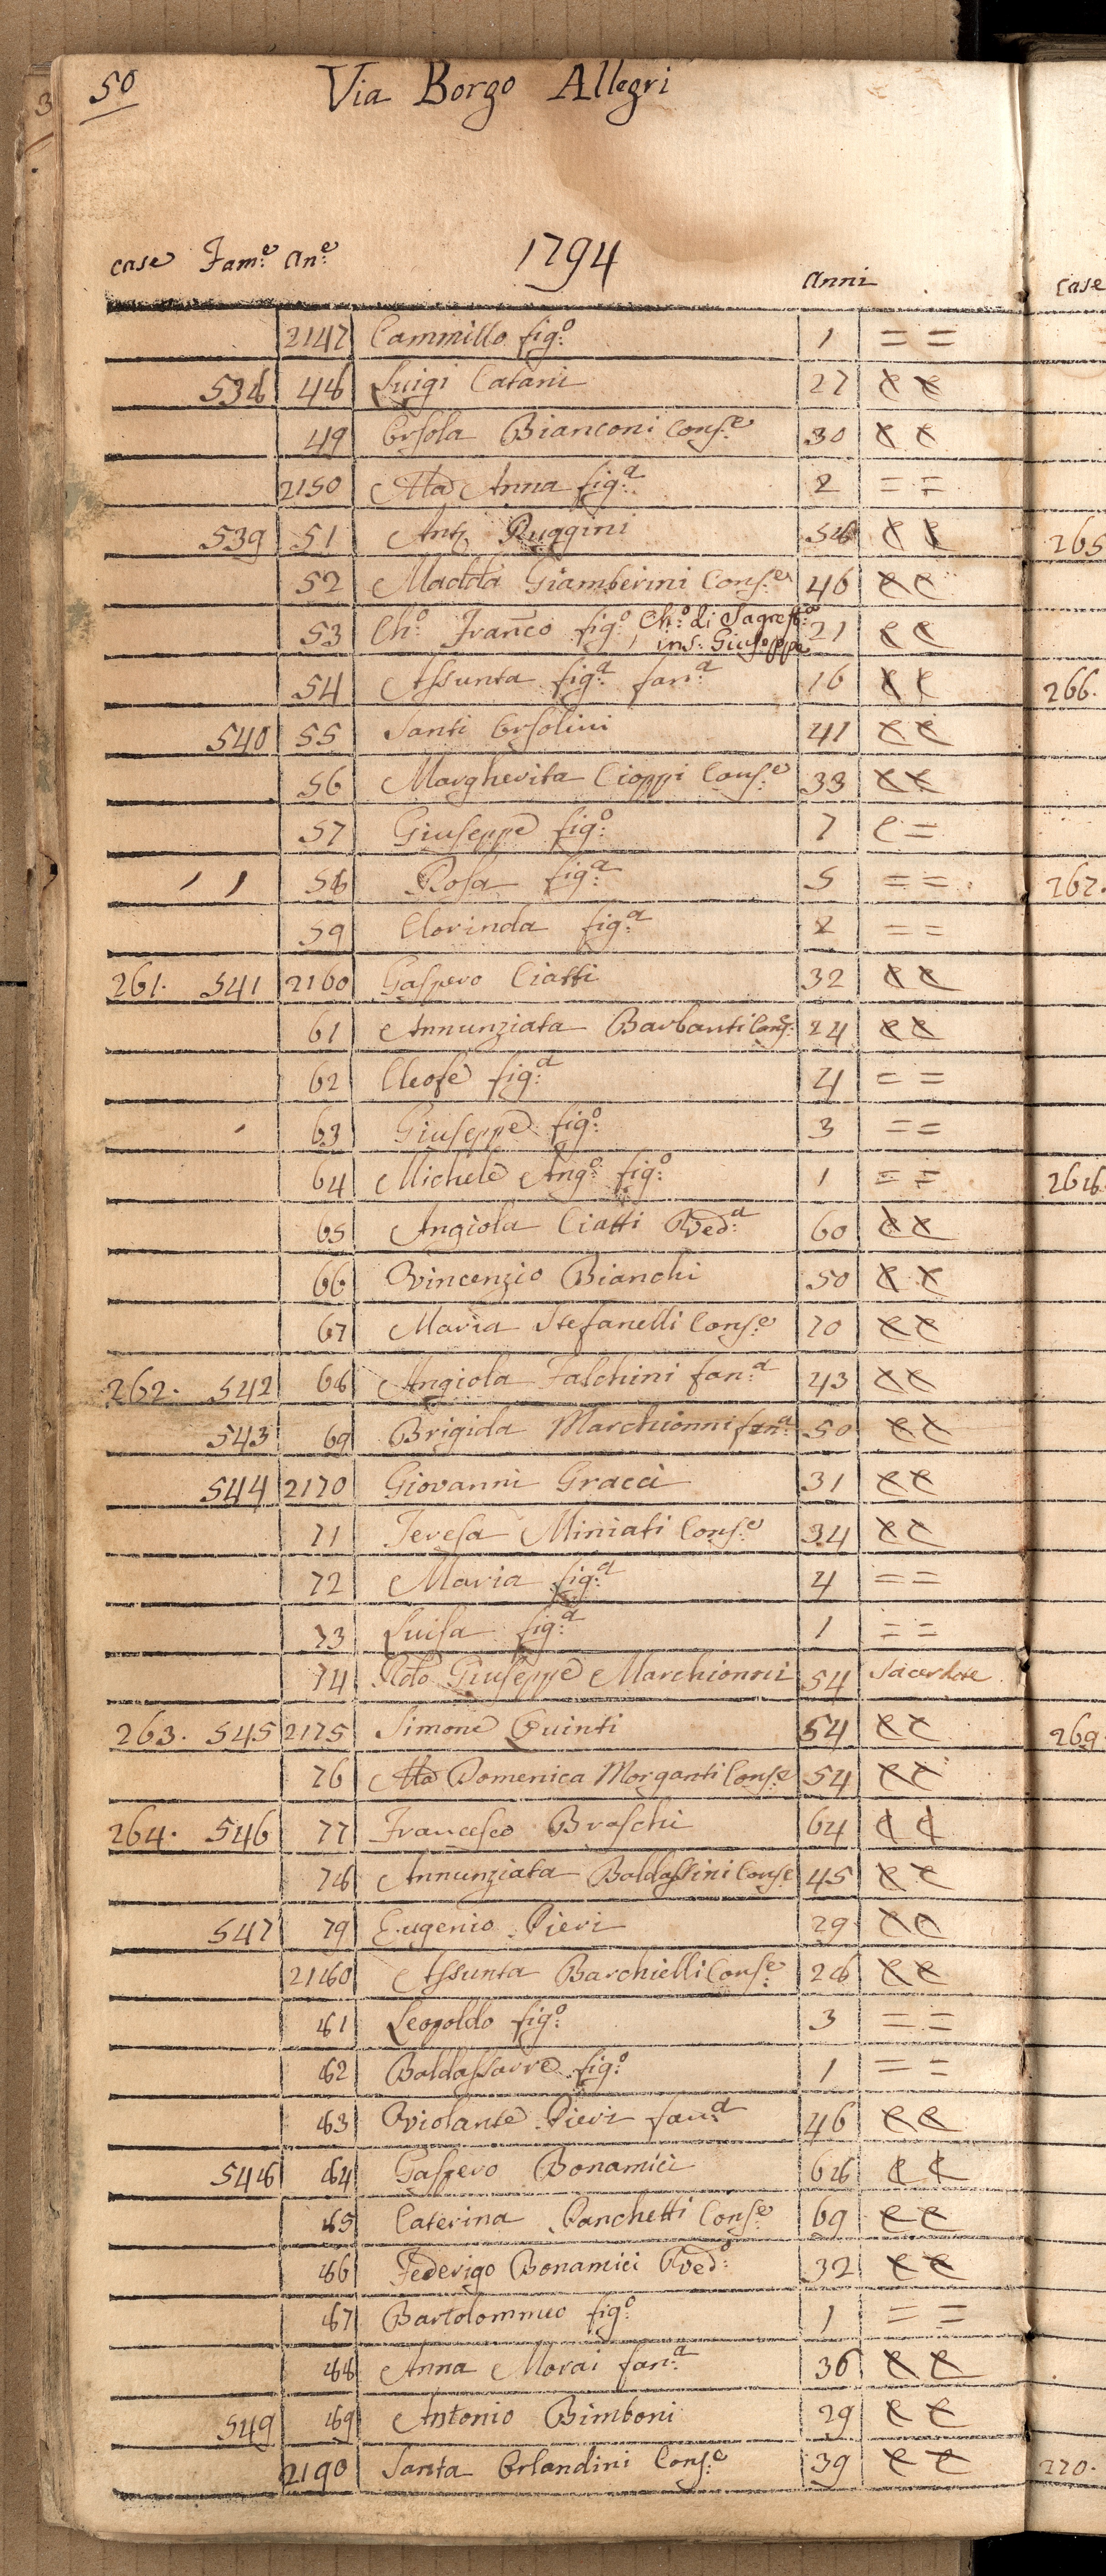 50 Via Borgo Allegri
1794
case Fam.e An.e anni
2147 Cammillo fig.o 1 = =
538 48 Luigi Catani 27
49 Orsola Bianconi Cons.e 30
2150 Ma Anna fig.a 2 = =
539 51 Ant. Ruggini 58
52 Madda Giamberini Cons.e 46
53 Ch.o Franco fig.o Ch.o di Sagrest.a 21
ins. Giuseppe
54 Assunta fig.a fan.a 16
540 55 Santi Orsolini 41
56 Margherita Cioppi Cons.e 33
57 Giuseppe fig.o 7 C =
58 Rosa fig.a 5 = =
59 Clorinda fig.a 2 = =
261. 541 2160 Gaspero Ciatti 32
61 Annunziata Barbanti Cons. 24
62 Cleofe fig.a 4 = =
63 Giuseppe fig.o 3 = =
64 Michele Ang.o fig.o 1 = =
65 Angiola Ciatti Ved.a 60
66 Vincenzio Bianchi 50
67 Maria Stefanelli Cons.e 70
262. 542 68 Angiola Falchini fan.a 43
543 69 Brigida Marchionni fan.a 50
544 2170 Giovanni Gracci 31
71 Teresa Miniati Cons.e 34
72 Maria fig.a 4 = =
73 Luisa fig.a 1 = =
74 Giuseppe Marchionni 54 Sacerdote
263. 545 2175 Simone Quinti 54
76 Ma Domenica Morganti Cons.e 54
264. 546 77 Francesco Braschi 64
78 Annunziata Baldassini Cons.e 45
547 79 Eugenio Pieri 29
2180 Assunta Barchielli Cons.e 28
81 Leopoldo fig.o 3 = =
82 Baldassarre fig.o 1 = =
83 Violante Pieri fan.a 46
548 84 Gaspero Bonamici 68
85 Caterina Panchetti Cons.e 69
86 Federigo Bonamici Ved.o 32
87 Bartolommeo fig.o 1 = =
88 Anna Morai fan.a 36
549 89 Antonio Bimboni 29
2190 Santa Orlandini Cons.e 39
case
265
266.
267.
268
269
270.